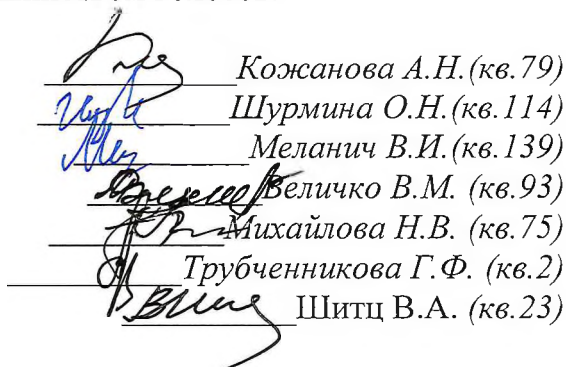 Кожанова А.Н.(кв.79)
Шурмина О.Н.(кв.114)
Меланич В.И.(кв.139)
Величко В.М. (кв.93)
Михайлова Н.В. (кв.75)
Трубченникова Г.Ф. (кв.2)
Шитц В.А. (кв.23)